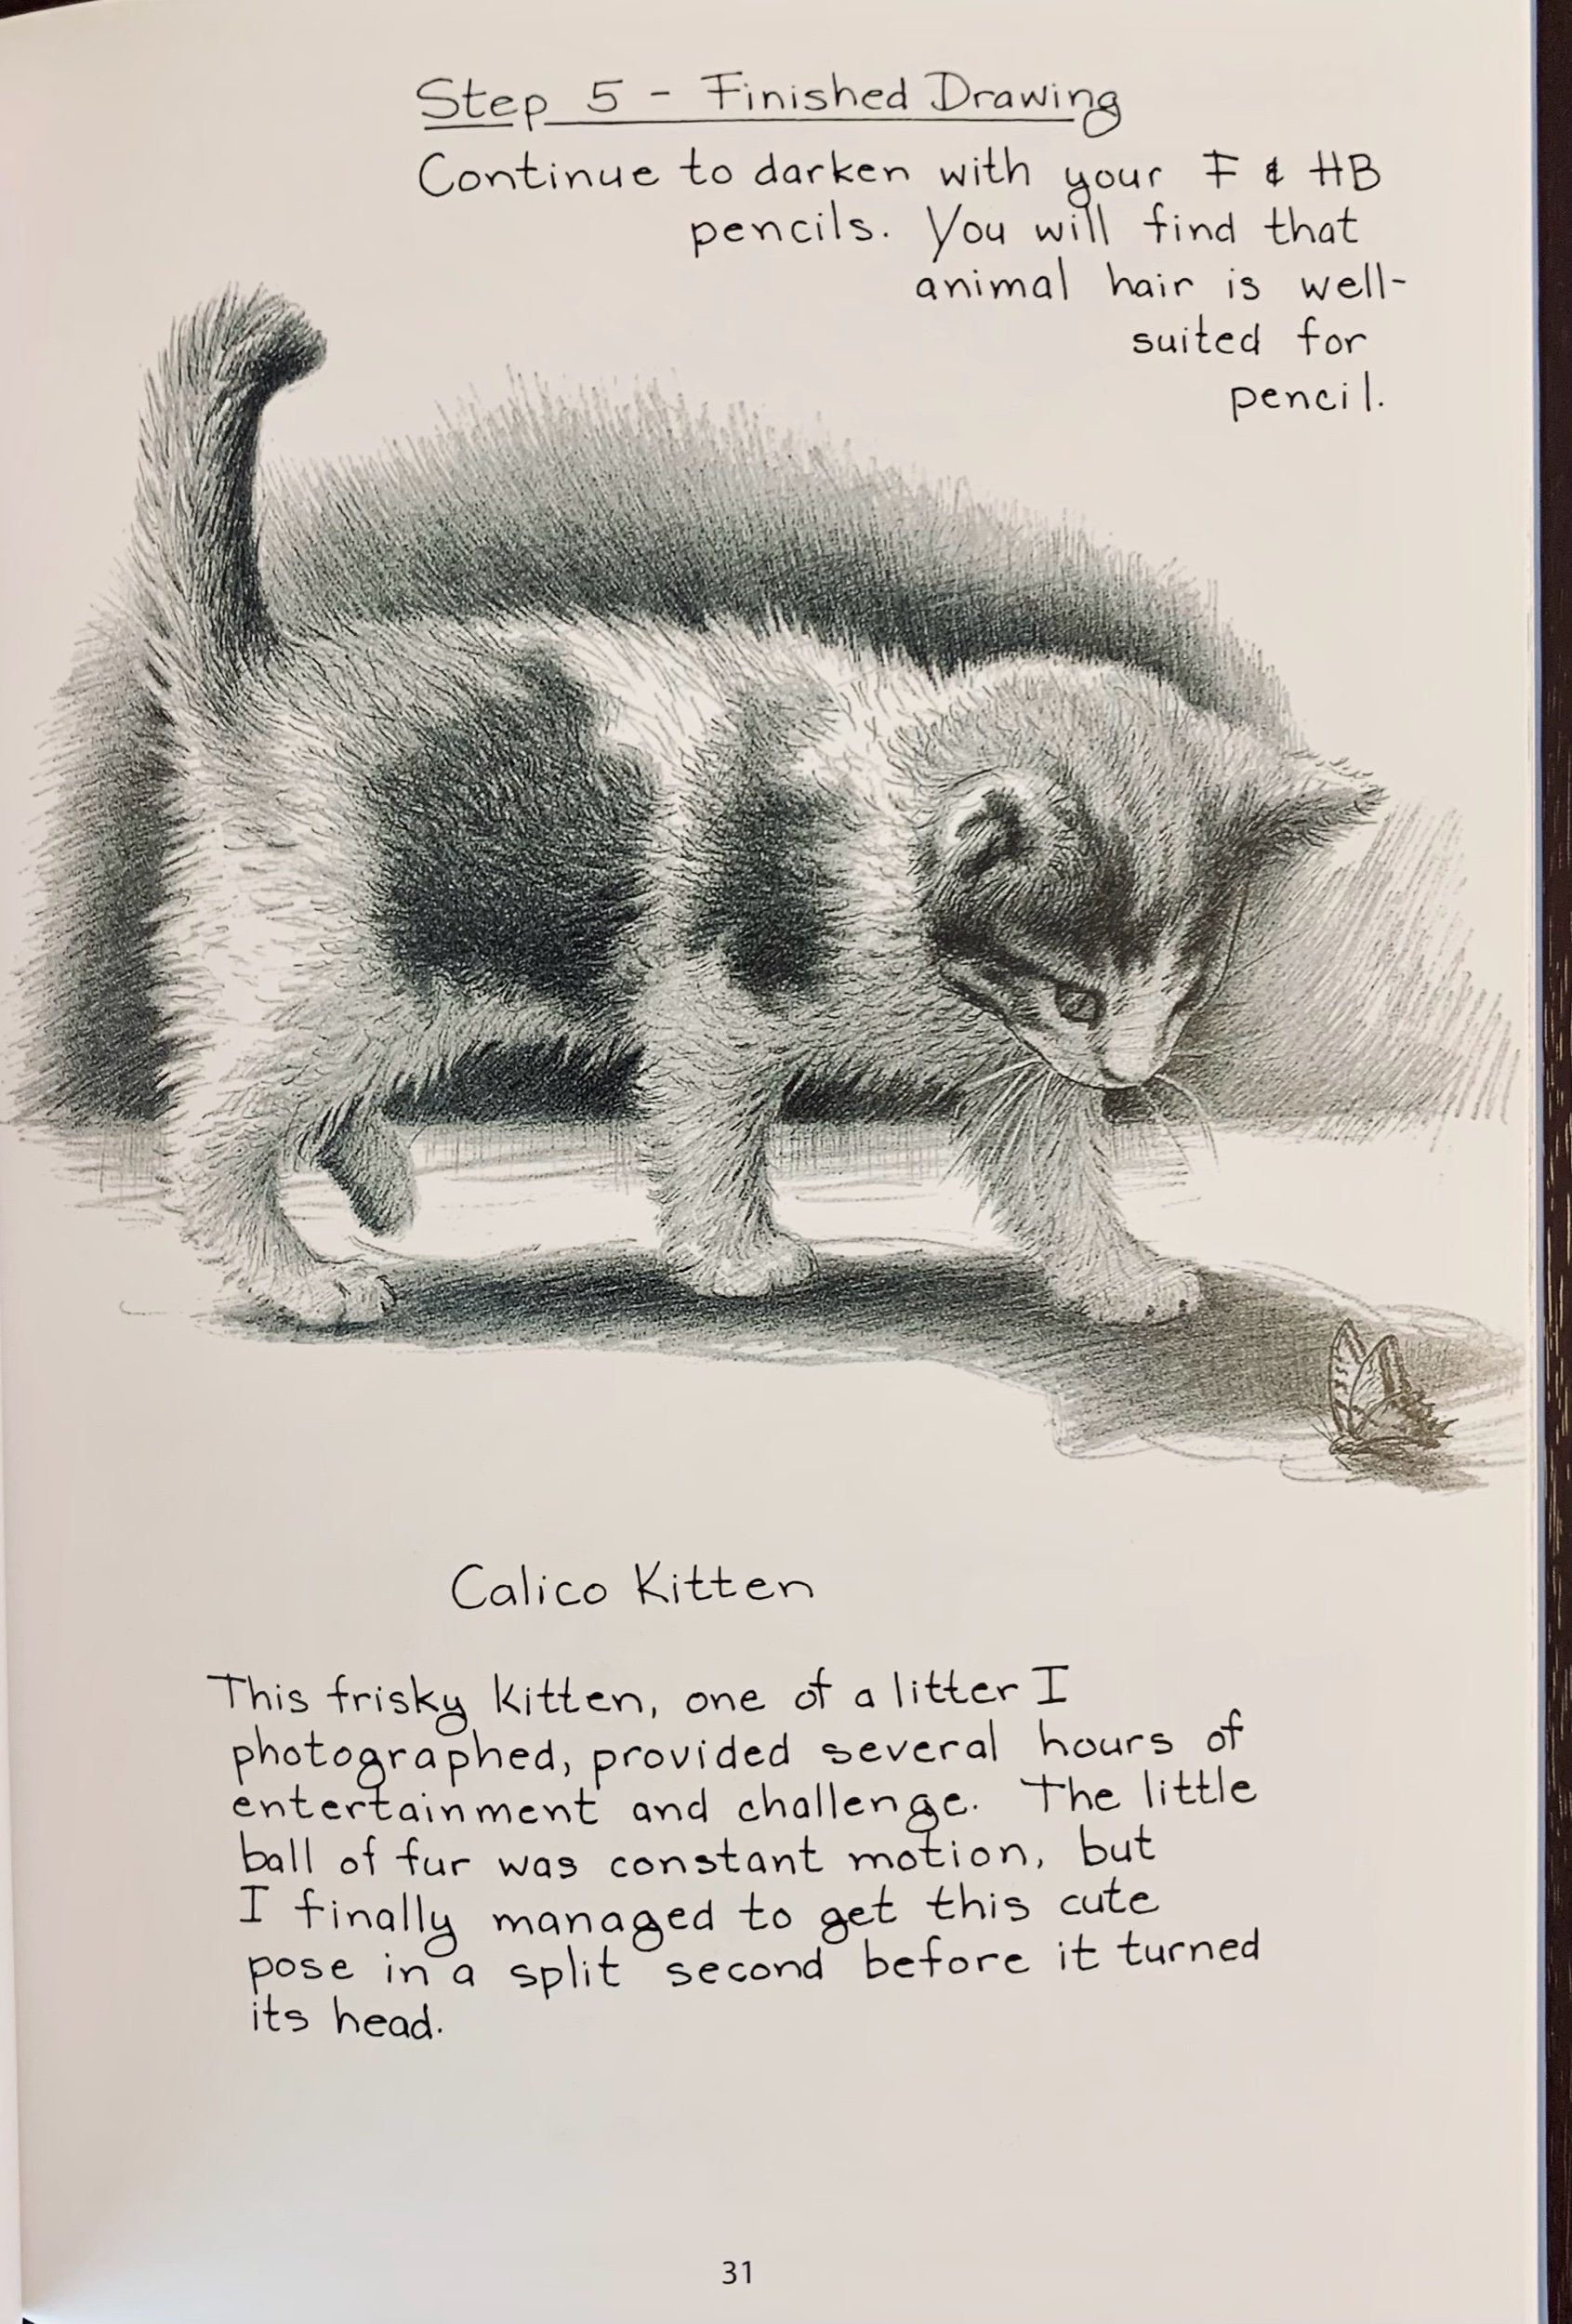 Step 5 - Finished Drawing
Continue to darken with your F & HB
pencils. You will find that
animal hair is well-
suited for
pencil.
Calico Kitten
This frisky kitten, one of a litter I
photographed, provided several hours of
entertainment and challenge. The little
ball of fur was constant motion, but
I finally managed to get this cute
pose in a split second before it turned
its head.
31